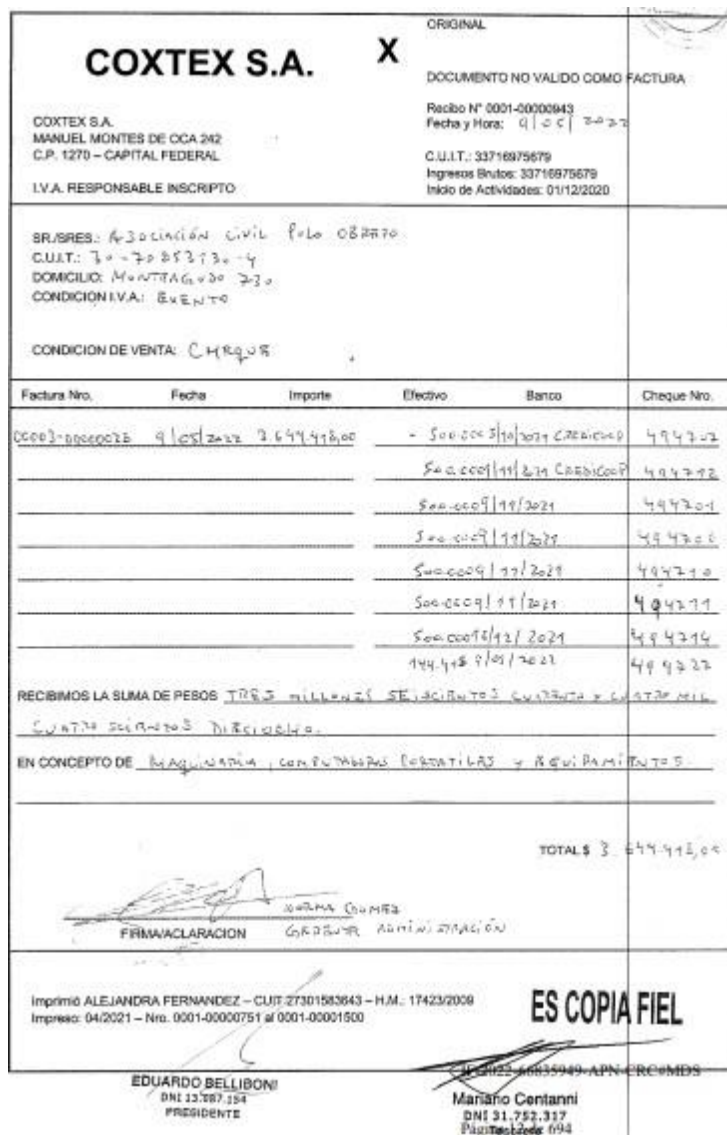 ORIGINAL
COXTEX S.A.
X
DOCUMENTO NO VALIDO COMO FACTURA
COXTEX S.A.
MANUEL MONTES DE OCA 242
C.P. 1270 – CAPITAL FEDERAL
I.V.A. RESPONSABLE INSCRIPTO
Recibo N° 0001-00000943
Fecha y Hora: 9/05/2022
C.U.I.T.: 33716975679
Ingresos Brutos: 33716975679
Inicio de Actividades: 01/12/2020
SR./SRES.: ASOCIACIÓN CIVIL POLO OBRERO
C.U.I.T.:
DOMICILIO: MONTEAGUDO 730
CONDICION I.V.A.: EXENTO
CONDICION DE VENTA: CHEQUE
Factura Nro. Fecha Importe Efectivo Banco Cheque Nro.
9/05/2022 3.644.418,00 - 500.000 5/10/2021 CREDICOOP 494707
500.000 9/11/2021 CREDICOOP 494712
500.000 9/11/2021
500.000 9/11/2021
500.000 9/11/2021 494710
500.000 9/11/2021 494711
500.000 /12/2021 494714
144.418 9/05/2022 494722
RECIBIMOS LA SUMA DE PESOS TRES MILLONES SEISCIENTOS CUARENTA Y CUATRO MIL
CUATROSCIENTOS DIECIOCHO.
EN CONCEPTO DE MAQUINARIA, COMPUTADORAS PORTATILES Y EQUIPAMIENTOS.
TOTAL $ 3.644.418,00
NORMA GOMEZ
FIRMA/ACLARACION GERENTE ADMINISTRACIÓN
Imprimió ALEJANDRA FERNANDEZ – CUIT 27301583643 – H.M.: 17423/2009
Impreso: 04/2021 – Nro. 0001-00000751 al 0001-00001500
ES COPIA FIEL
EDUARDO BELLIBONI
DNI 13.087.194
PRESIDENTE
IF-2022-66835949-APN-CRC#MDS
Mariano Centanni
DNI 31.752.317
Página 12 de 694